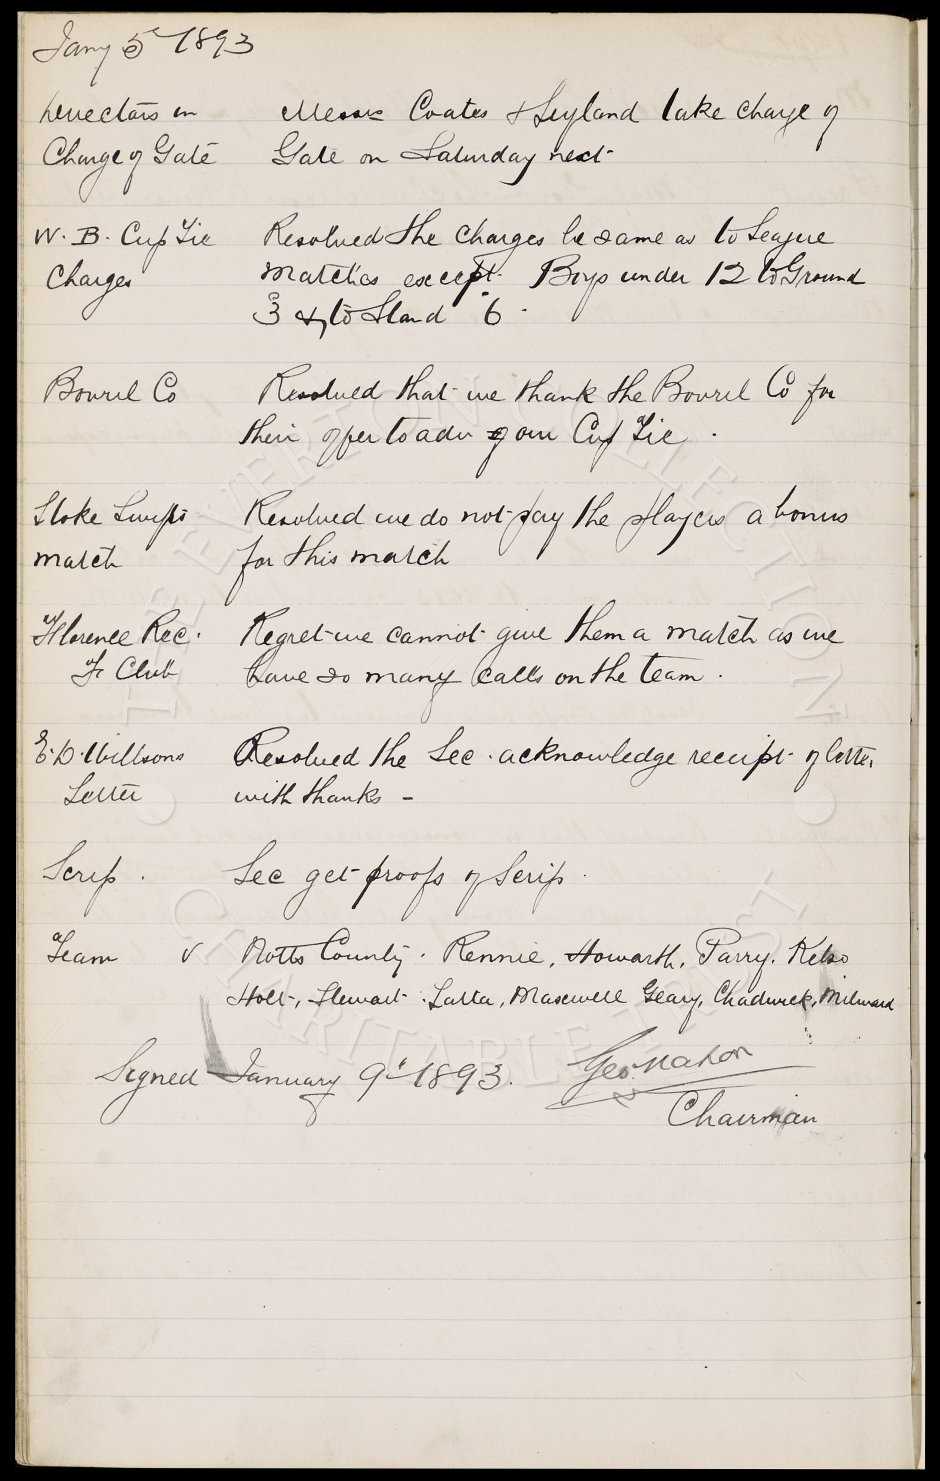 Jany 5th 1893
Directors in Messrs Coates & Leyland take charge of
Charge of Gate Gate on Saturday next
W. B. Cup Tie Resolved the charges be same as to League
Charges matches except Boys under 12 to Ground
3 & to Stand 6.
Bovril Co Resolved that we thank the Bovril Co for
their offer to adv our Cup Tie.
Stoke Swifts Resolved we do not pay the players a bonus
match for this match
Florence Rec. Regret we cannot give them a match as we
F. Club have so many calls on the team.
E. D. Willsons Resolved the Sec. acknowledge receipt of letter
Letter with thanks -
Scrip. Sec get proofs of Scrip.
Team v Notts County. Rennie, Howarth, Parry, Kelso
Holt, Stewart. Latta, Maxwell Geary, Chadwick, Milward
Signed January 9th 1893. Geo. Mahon
Chairman
THE EVERTON COLLECTION
CHARITABLE TRUST